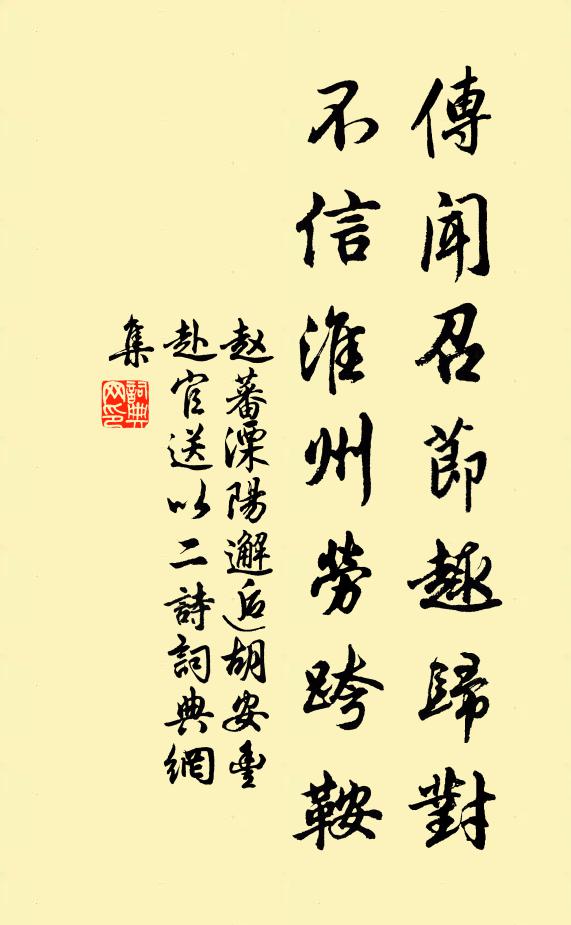 傳聞召節趣歸對
不信淮州勞跨鞍
赵蕃溧陽邂逅胡安豊
赴官送以二詩詞典網
集
詞典
网印